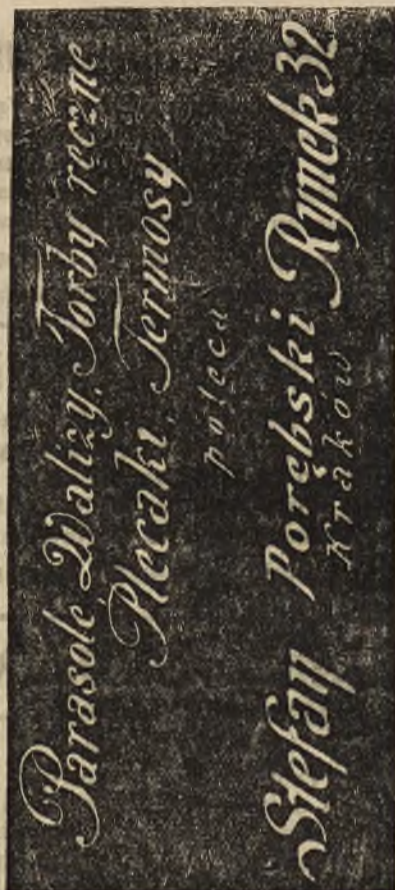 Parasole, Walizy, Torby ręczne
Plecaki, Termosy
poleca
Stefan Porębski Rynek 32
Kraków